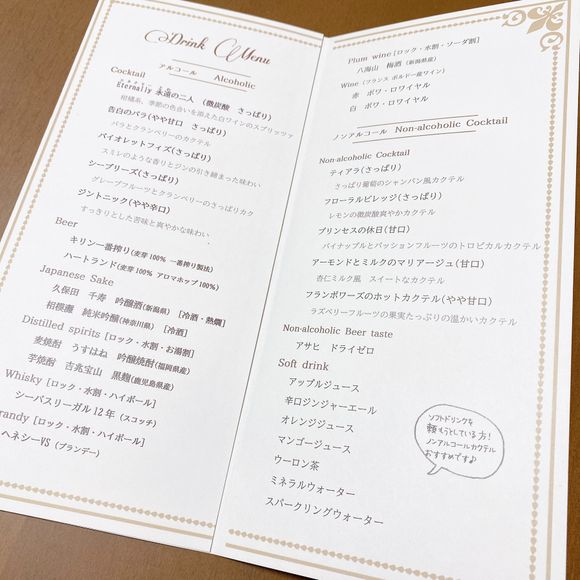 Drink Menu
アルコール Alcoholic
Cocktail
Eternally 永遠の二人 (微炭酸 さっぱり)
柑橘系、季節の色合いを添えた白ワインのスプリッツァ
告白のバラ(やや甘口 さっぱり)
バラとクランベリーのカクテル
バイオレットフィズ(さっぱり)
スミレのような香りとジンの引き締まった味わい
シーブリーズ(さっぱり)
グレープフルーツとクランベリーのさっぱりカク
ジントニック(やや辛口)
すっきりとした苦味と爽やかな味わい
Beer
キリン一番搾り(麦芽100% 一番搾り製法)
ハートランド(麦芽100% アロマホップ100%)
Japanese Sake
久保田 千寿 吟醸酒(新潟県) [冷酒・熱燗]
相模灘 純米吟醸(神奈川県) [冷酒]
Distilled spirits [ロック・水割・お湯割]
麦焼酎 うすはね 吟醸焼酎(福岡県産)
芋焼酎 吉兆宝山 黒麹(鹿児島県産)
Whisky [ロック・水割・ハイボール]
シーバスリーガル12年 (スコッチ)
randy [ロック・水割・ハイボール]
ヘネシーVS (ブランデー)
Plum wine [ロック・水割・ソーダ割]
八海山 梅酒 (新潟県産)
Wine (フランス ボルドー産ワイン)
赤 ボワ・ロワイヤル
白 ボワ・ロワイヤル
ノンアルコール Non-alcoholic Cocktail
Non-alcoholic Cocktail
ティアラ(さっぱり)
さっぱり葡萄のシャンパン風カクテル
フローラルビレッジ(さっぱり)
レモンの微炭酸爽やかカクテル
プリンセスの休日(甘口)
パイナップルとパッションフルーツのトロピカルカクテル
アーモンドとミルクのマリアージュ(甘口)
杏仁ミルク風 スイートなカクテル
フランボワーズのホットカクテル(やや甘口)
ラズベリーフルーツの果実たっぷりの温かいカクテル
Non-alcoholic Beer taste
アサヒ ドライゼロ
Soft drink
アップルジュース
辛口ジンジャーエール
オレンジジュース
マンゴージュース
ウーロン茶
ミネラルウォーター
スパークリングウォーター
ソフトドリンクを
頼もうとしている方!
ノンアルコールカクテル
おすすめです♪